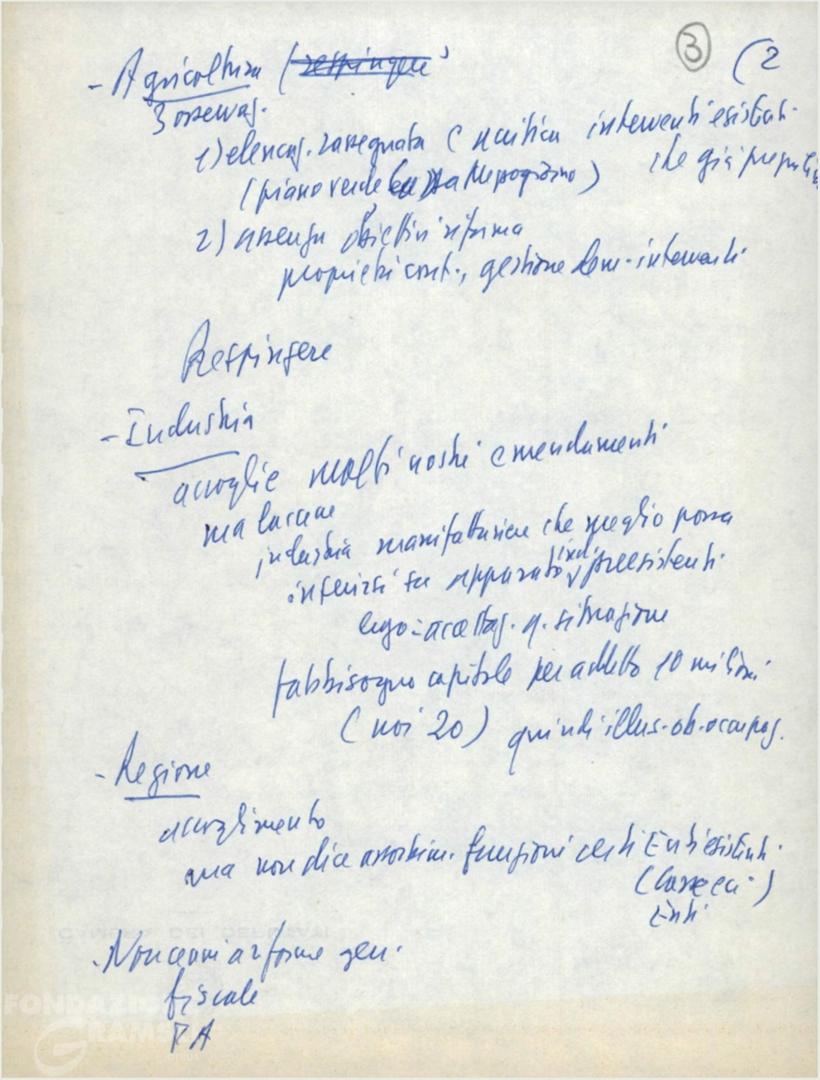 ③ (2
- Agricoltura (respingere)
3 osservaz.
1) elencaz. rassegnata e critica interventi esistenti
(piano verde Cassa Mezzogiorno) che già
2) assenza obiettivi riforma
proprietà cont., gestione dem. interventi
Respingere
- Industria
accoglie molti nostri emendamenti
ma lacune
industria manifatturiera che meglio possa
inserirsi su apparato ind. preesistenti
ergo: accettaz. q. situazione
fabbisogno capitale per addetto 10 milioni
(noi 20) quindi illus. ob. occupaz.
- Regione
accoglimento
ma non dice assorbim. funzioni Enti esistenti
(Casse ecc.)
Enti
- Non cenni a riforme gen.
fiscale
P A
CAMERA DEI DEPUTATI
FONDAZIONE
GRAMSCI